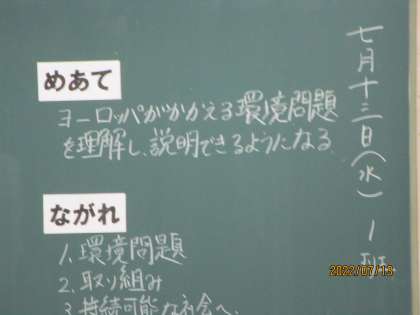 七月十三日(水) 1班
めあて
ヨーロッパがかかえる環境問題
を理解し、説明できるようになる
ながれ
1. 環境問題
2. 取り組み
3. 持続可能な社会へ
2022/07/13